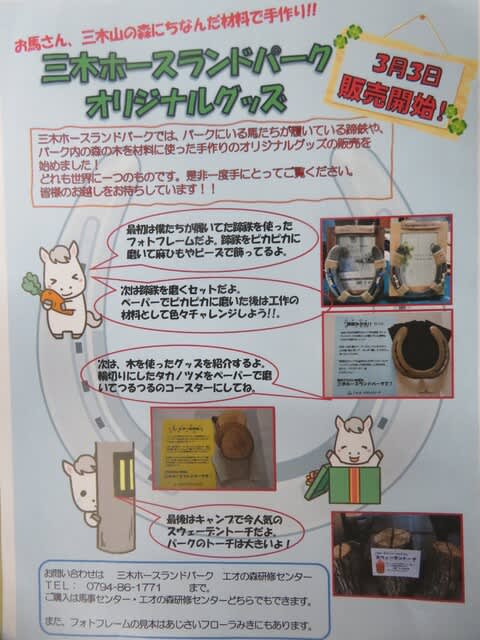 お馬さん、三木山の森にちなんだ材料で手作り!!
三木ホースランドパーク
オリジナルグッズ
3月3日
販売開始!
三木ホースランドパークでは、パークにいる馬たちが履いている蹄鉄や、
パーク内の森の木を材料に使った手作りのオリジナルグッズの販売を
始めました!
どれも世界に一つのものです。是非一度手にとってご覧ください。
皆様のお越しをお待ちしています!!
最初は僕たちが履いてた蹄鉄を使った
フォトフレームだよ。蹄鉄をピカピカに
磨いて麻ひもやビーズで飾ってるよ。
次は蹄鉄を磨くセットだよ。
ペーパーでピカピカに磨いた後は工作の
材料として色々チャレンジしよう!!。
次は、木を使ったグッズを紹介するよ。
輪切りにしたタカノツメをペーパーで磨
いてつるつるのコースターにしてね。
最後はキャンプで今人気の
スウェーデントーチだよ。
パークのトーチは大きいよ!
お問い合わせは 三木ホースランドパーク エオの森研修センター
TEL: 0794-86-1771 まで。
ご購入は馬事センター・エオの森研修センターどちらでもできます。
また、フォトフレームの見本はあじさいフローラみきにもあります。